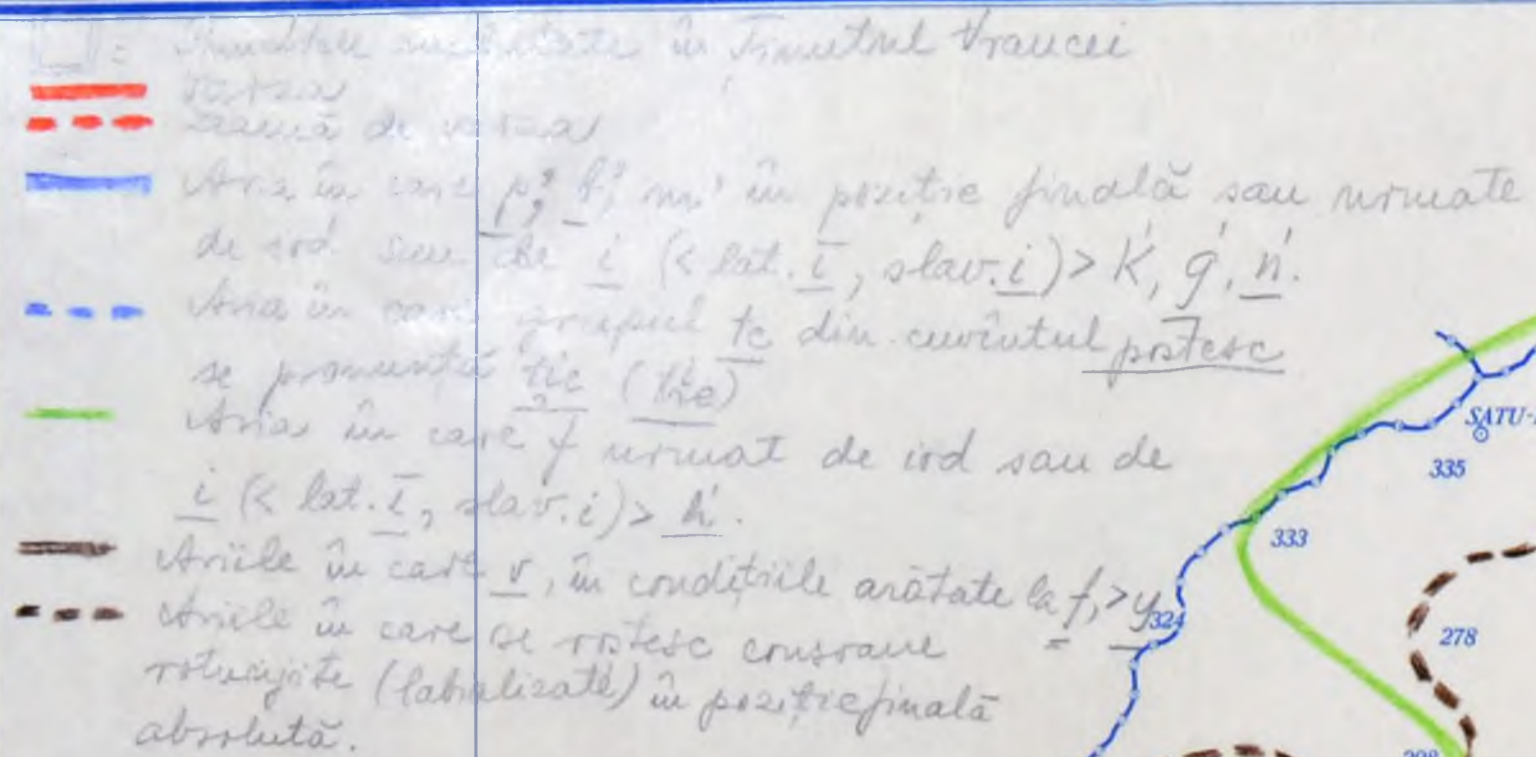 în Ținutul Vrancei
varza
zeamă de varză
Aria în care p', b', m' în poziție finală sau urmate
de iod sau de i (< lat. ī, slav. i) > ḱ, ǵ, ń.
Aria în care grupul te din cuvîntul postesc
se pronunță (t'ie)
Aria în care f urmat de iod sau de
i (< lat. ī, slav. i) > h́.
Ariile în care v, în condițiile arătate la f, > y
Ariile în care se rostesc consoane
rotunjite (labializate) în poziție finală
absolută.
SATU-
335
333
324
278
298